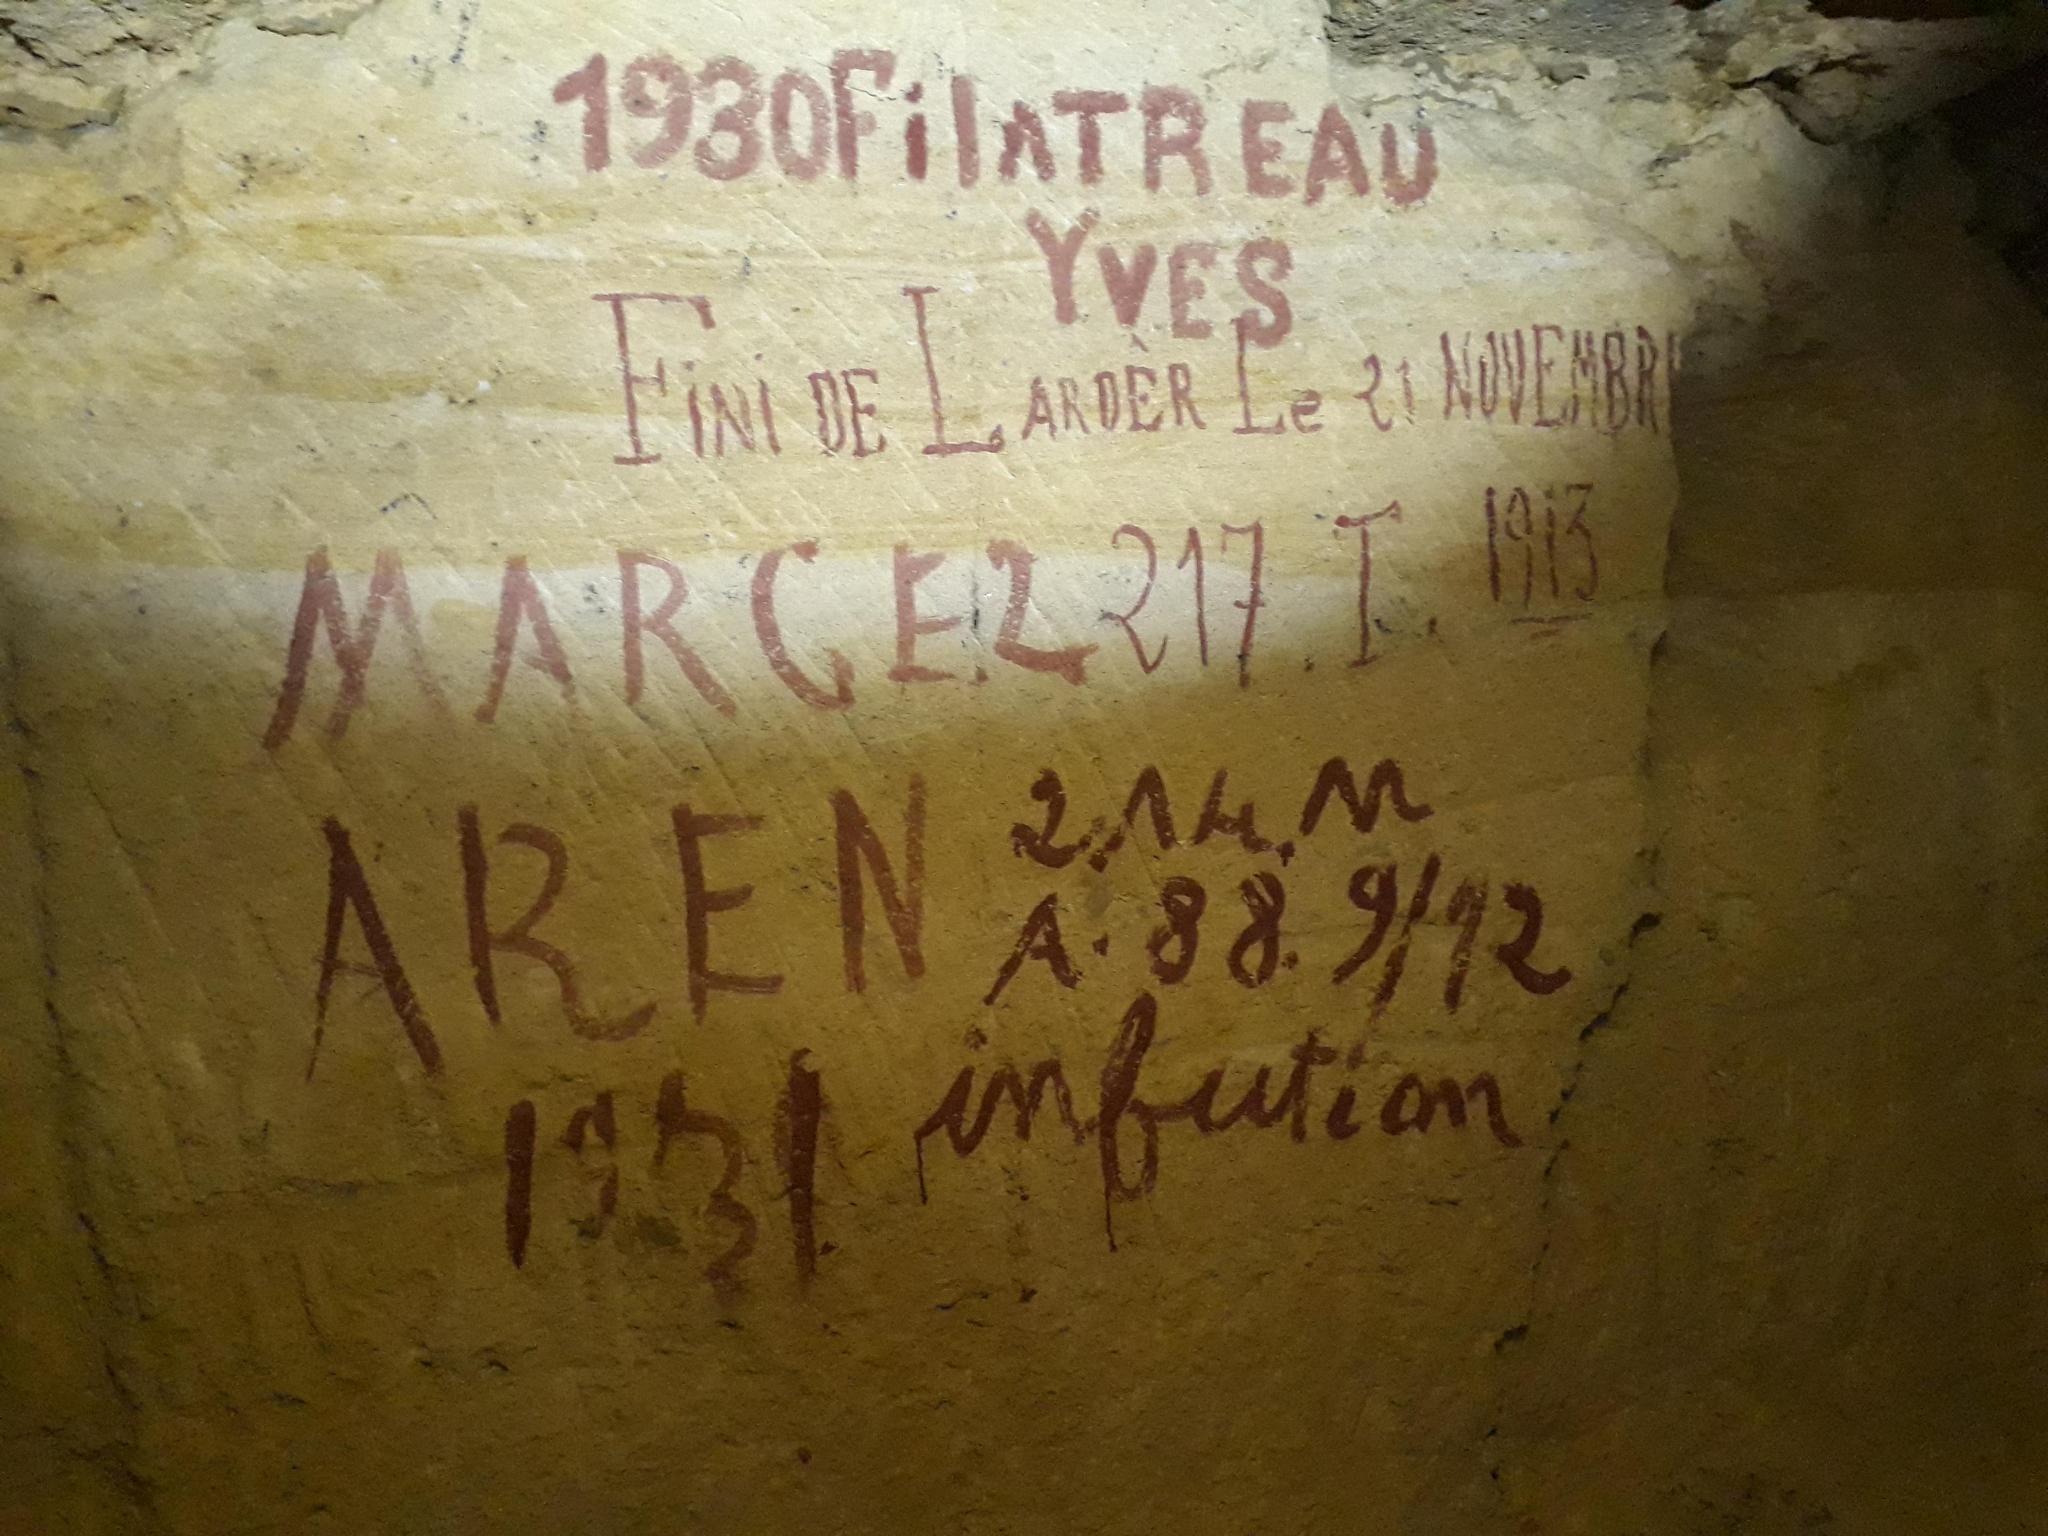 1930 FilATREAU
YVES
FINI DE LARDÈR Le 21 NOVEMBRE
MARCEL 217. T. 1913
AREN 2.14.M
A. 88. 9/12
1931 infution